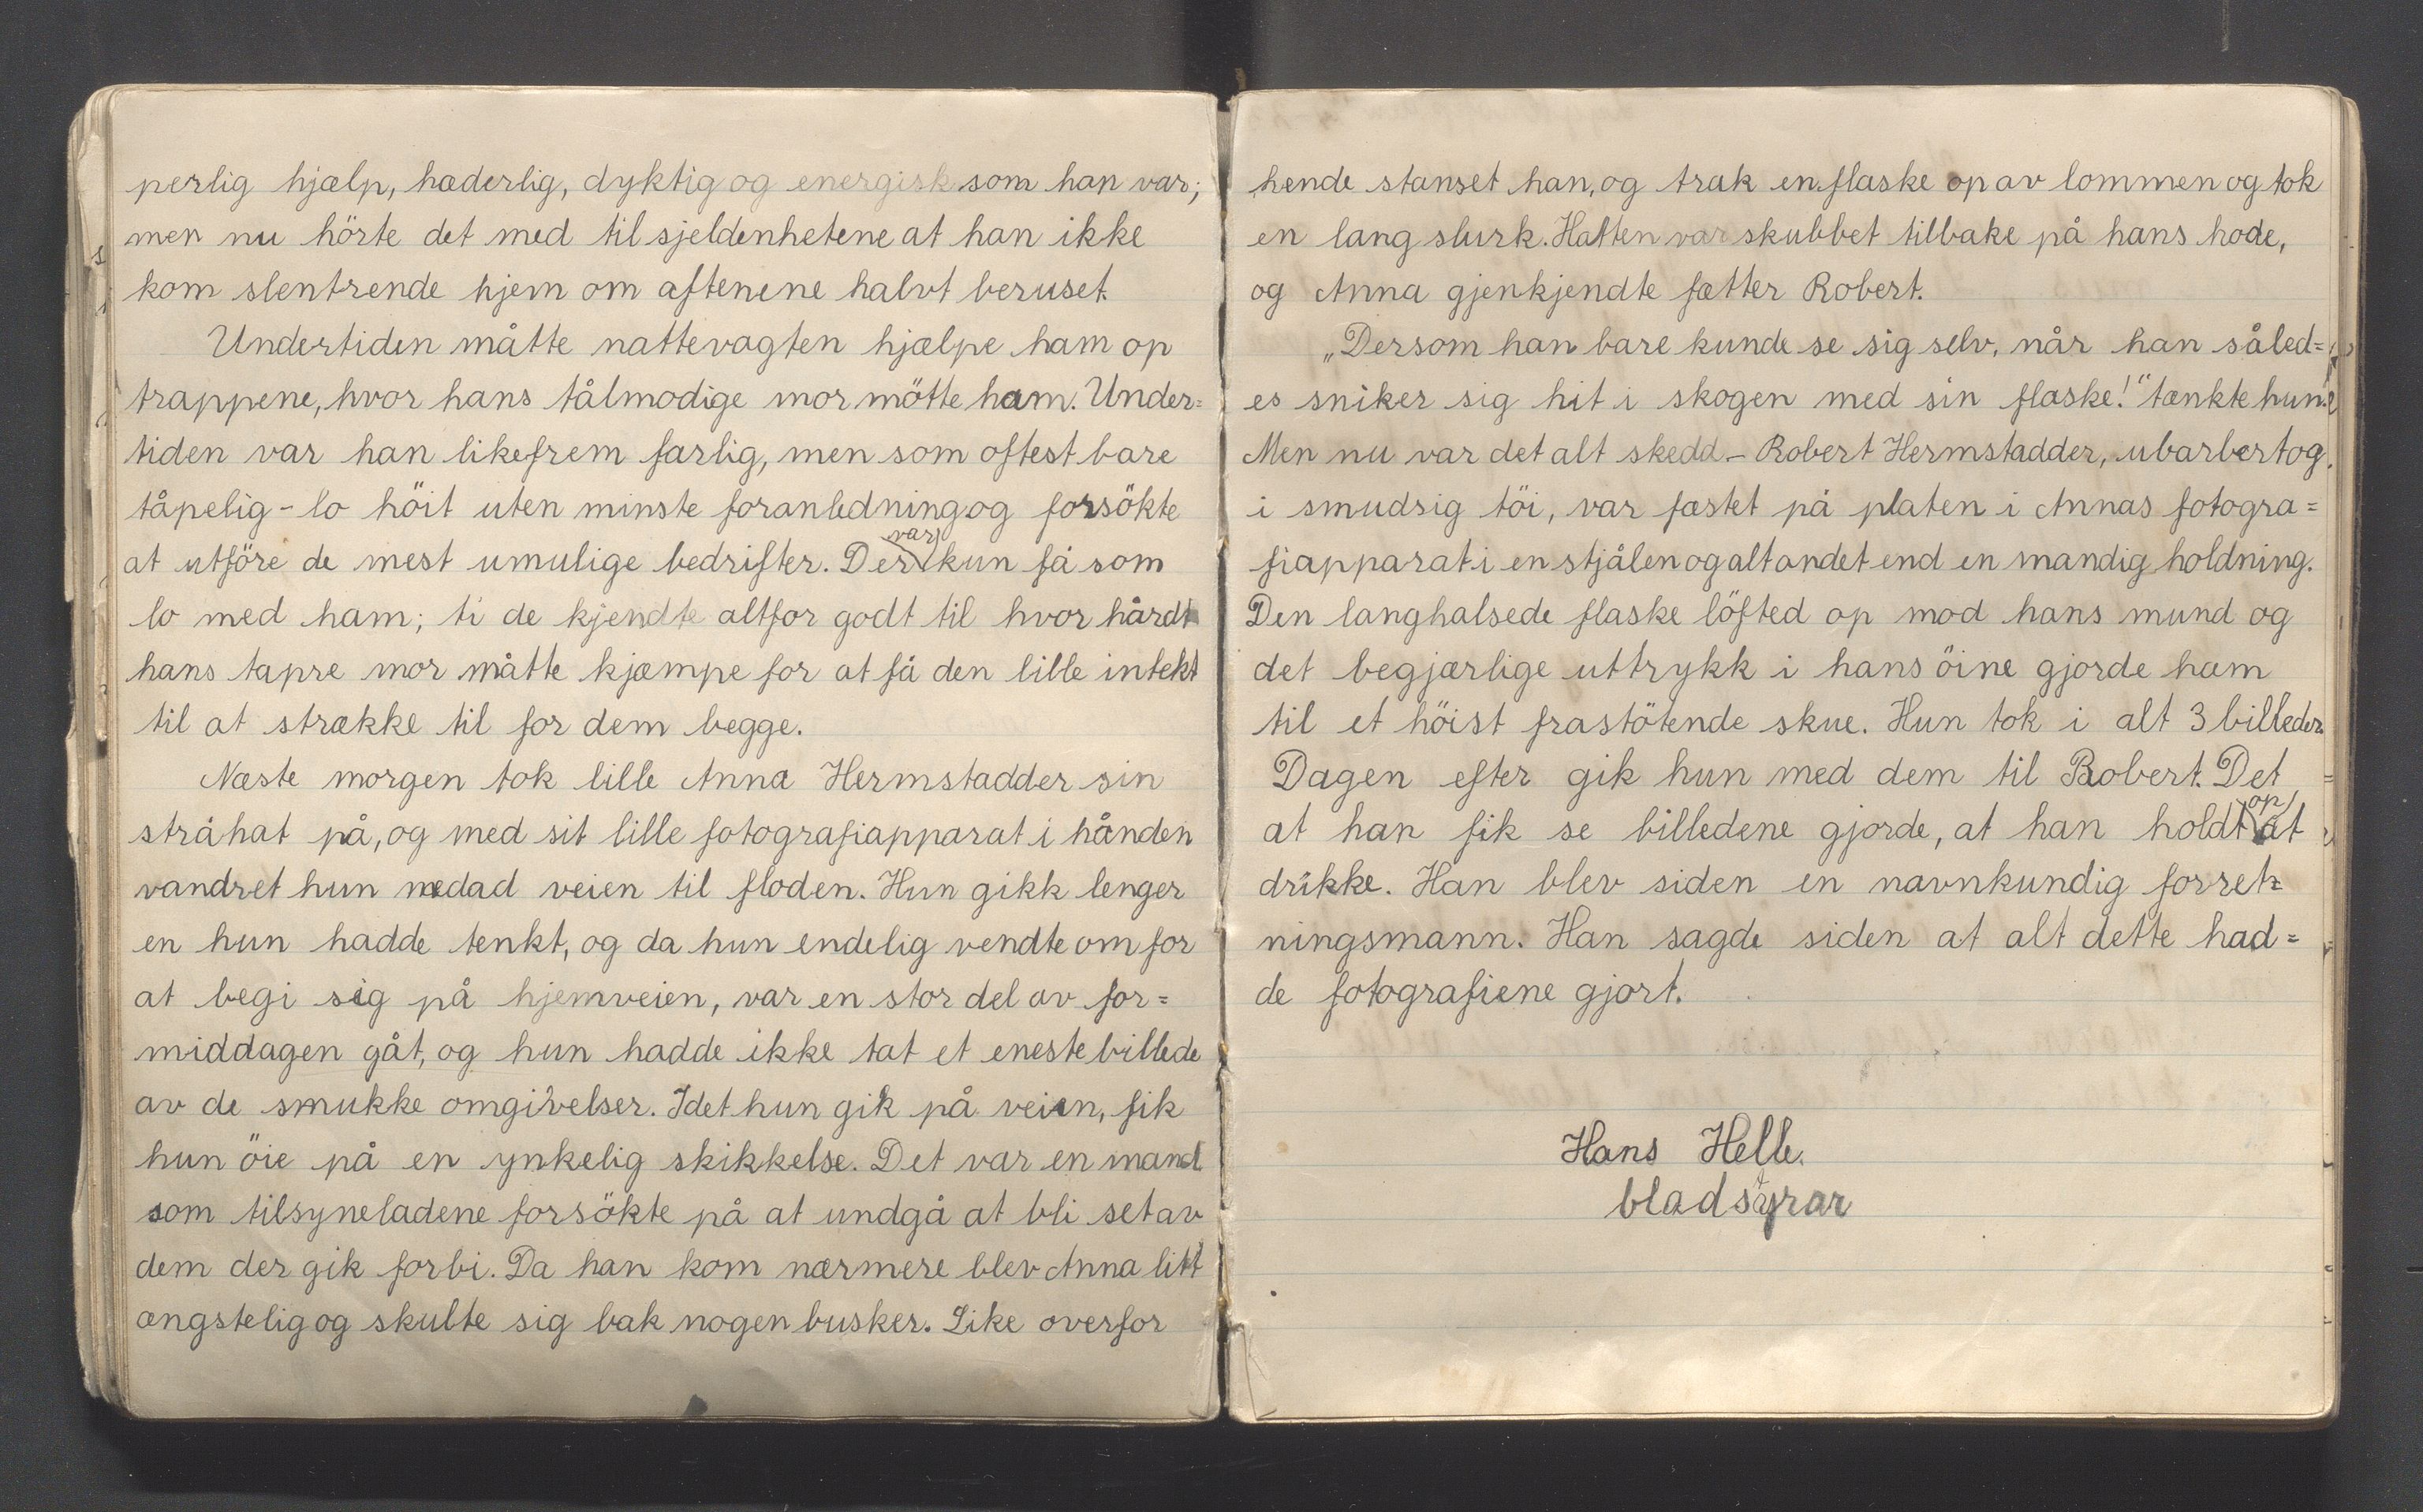 perlig hjælp, hæderlig, dyktig og energisk som han var;
men nu hörte det med til sjeldenhetene at han ikke
kom slentrende hjem om aftenene halvt beruset.
Undertiden måtte nattevagten hjælpe ham op
trappene, hvor hans tålmodige mor mötte ham. Under=
tiden var han likefrem farlig, men som oftest bare
tåpelig - lo höit uten minste foranledning og forsökte
at utföre de mest umulige bedrifter. Der var kun få som
lo med ham; ti de kjendte altfor godt til hvor hårdt
hans tapre mor måtte kjæmpe for at få den lille intekt
til at strække til for dem begge.
Næste morgen tok lille Anna Hermstadder sin
stråhat på, og med sit lille fotografiapparat i hånden
vandret hun nedad veien til floden. Hun gikk lenger
en hun hadde tenkt, og da hun endelig vendte om for
at begi sig på hjemveien, var en stor del av for=
middagen gåt, og hun hadde ikke tat et eneste billede
av de smukke omgivelser. Idet hun gik på veien, fik
hun öie på en ynkelig skikkelse. Det var en mand
som tilsyneladene forsökte på at undgå at bli set av
dem der gik forbi. Da han kom nærmere blev Anna litt
ængstelig og skulte sig bak nogen busker. Like overfor
hende stanset han, og trak en flaske op av lommen og tok
en lang slurk. Hatten var skubbet tilbake på hans hode,
og Anna gjenkjendte fætter Robert.
„Dersom han bare kunde se sig selv, når han såled=
es sniker sig hit i skogen med sin flaske!" tænkte hun.
Men nu var det alt skedd - Robert Hermstadder, ubarbert og
i smudsig töi, var fæstet på platen i Annas fotogra=
fiapparat i en stjålen og alt andet end en mandig holdning.
Den langhalsede flaske löfted op mod hans mund og
det begjærlige uttrykk i hans öine gjorde ham
til et höist frastötende skue. Hun tok i alt 3 billeder.
Dagen efter gik hun med dem til Robert. Det
at han fik se billedene gjorde, at han holdt op at
drikke. Han blev siden en navnkundig forret=
ningsmann. Han sagde siden at alt dette had=
de fotografiene gjort.
Hans Helle.
bladstyrar